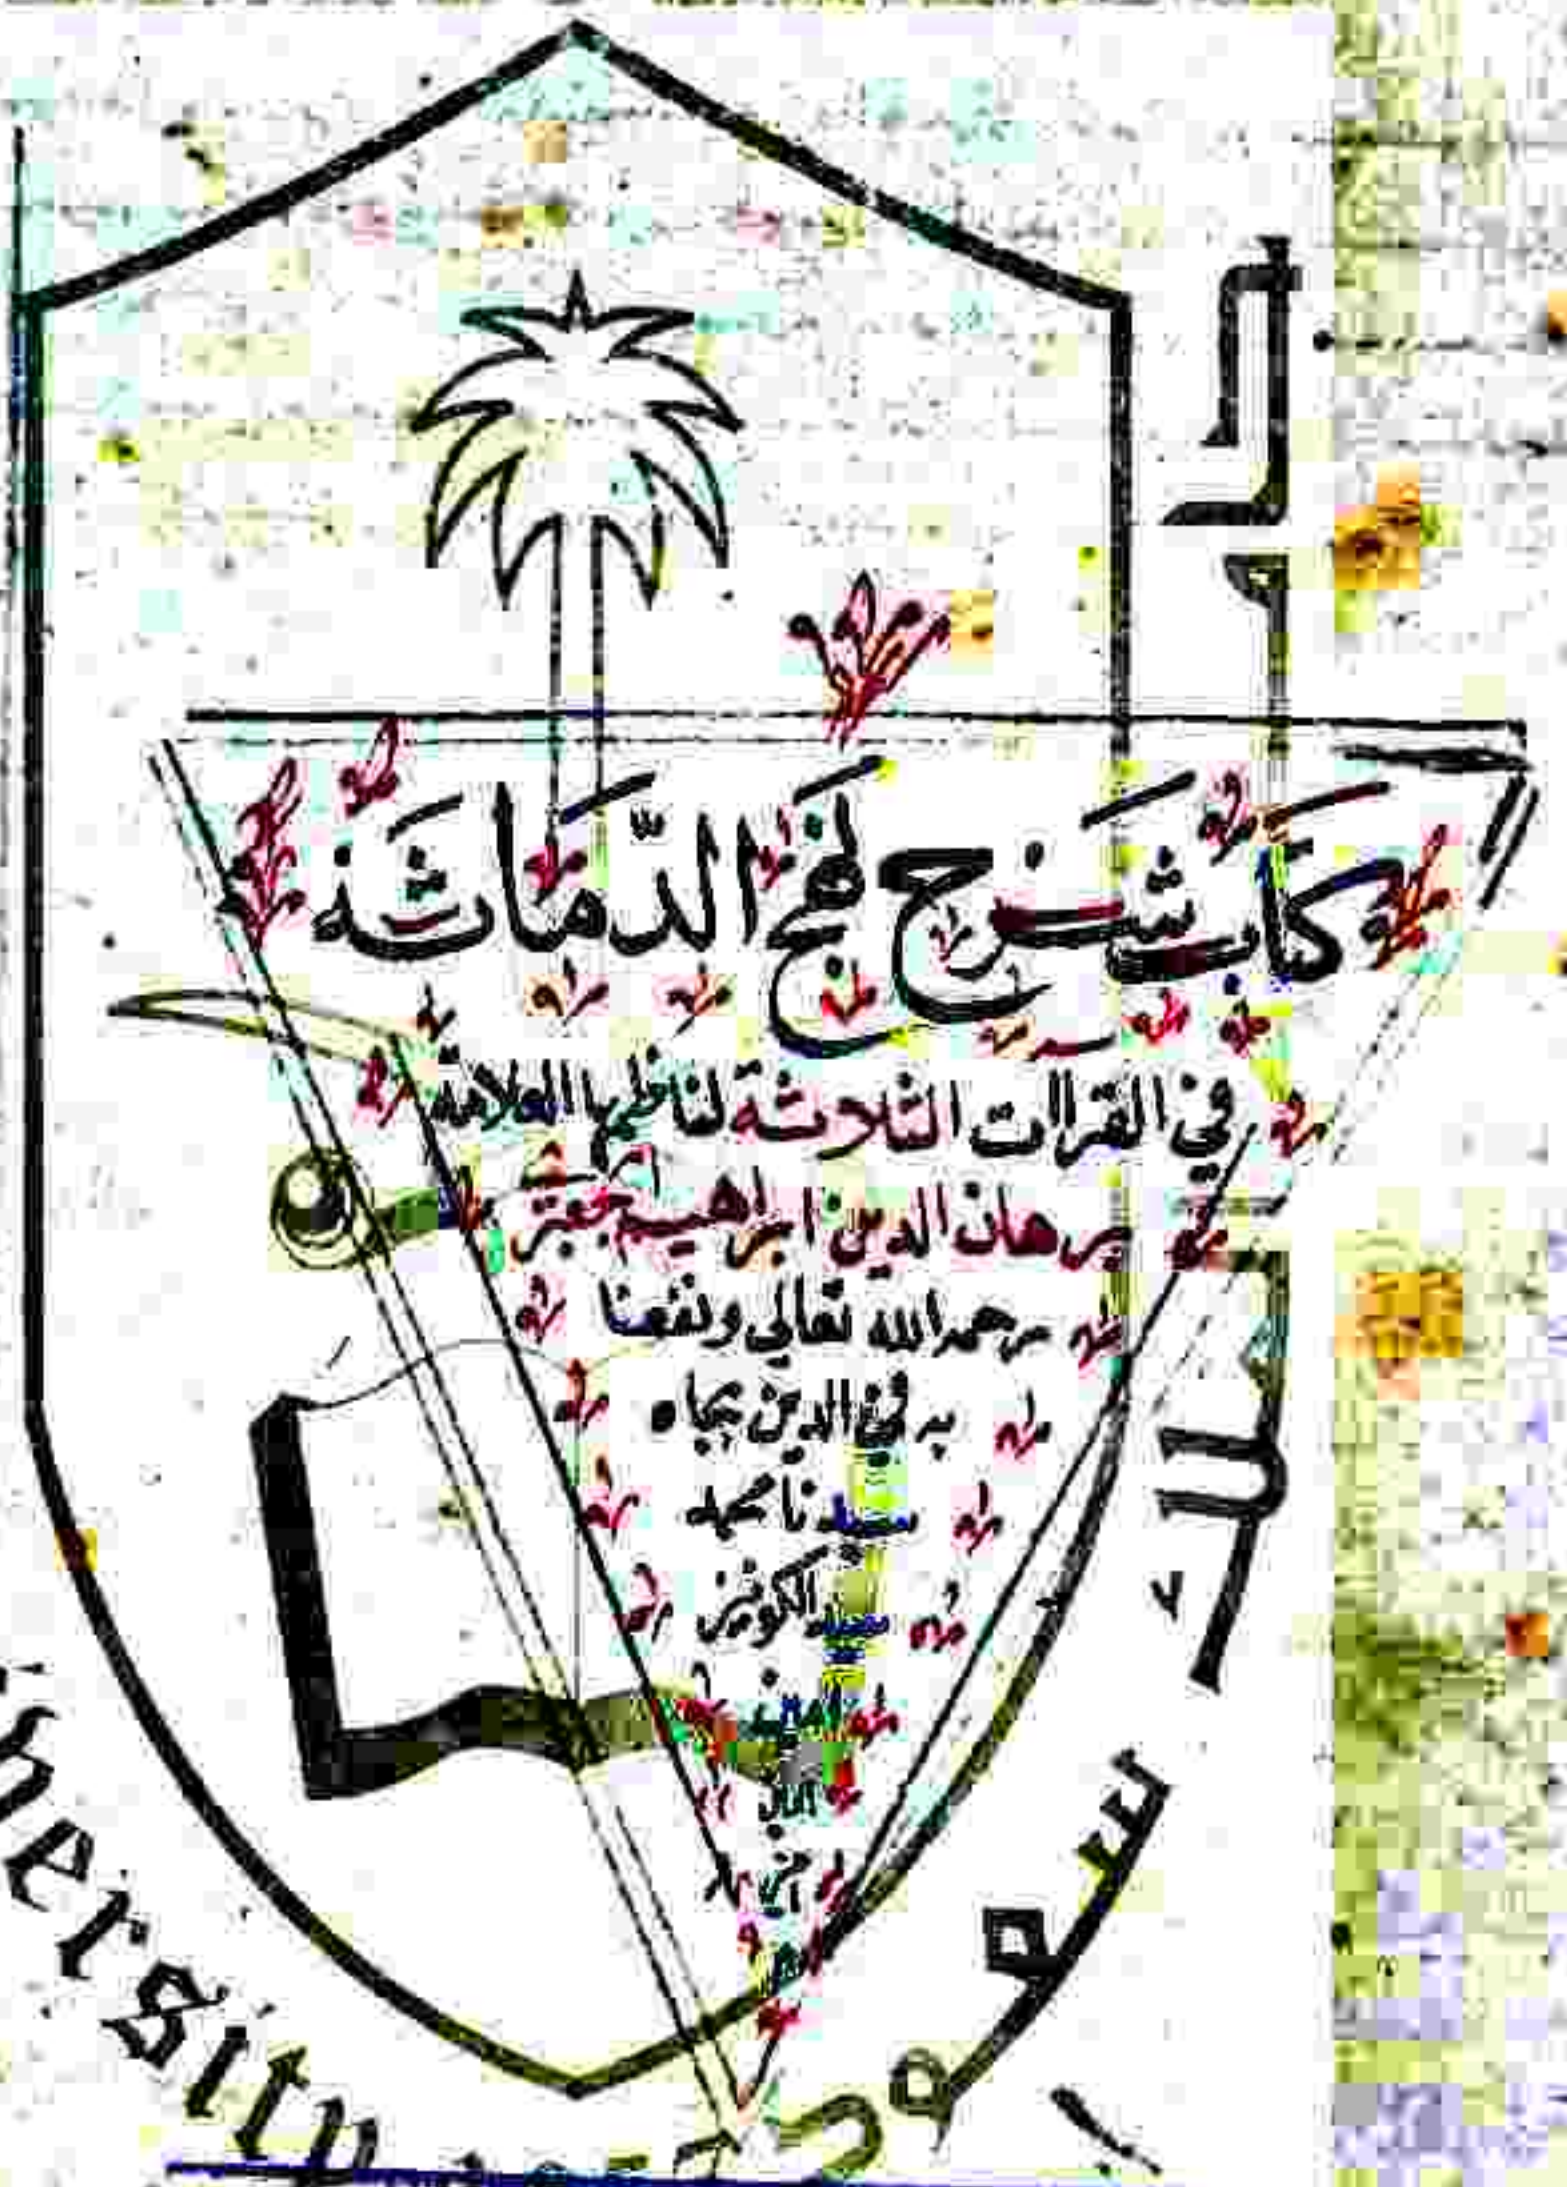 كتاب شرح نهج الدماثة
في القراات الثلاثة لناظمها العلامة
برهان الدين ابراهيم جعبر
رحمه الله تعالي ونفعنا
به في الدين بجاه
سيدنا محمد
سيد الكونين
امين